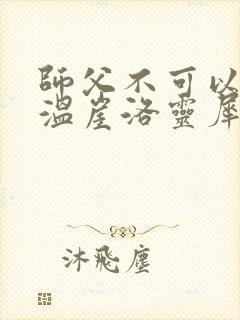 師父不可以
溫崖洛靈犀
沐飛塵